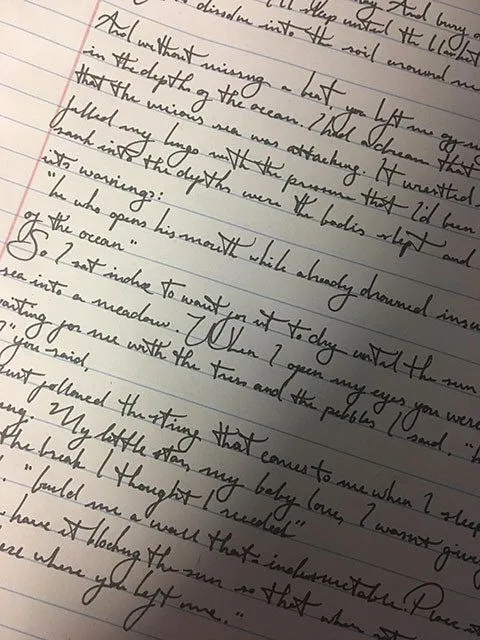 And bury
to dissolve into the soil around me
I'll sleep until the blanket
And without missing a beat you left me
in the depths of the ocean. I had a dream that
that the vicious sea was attacking. It wrestled
filled my lungs with the pressure that I'd been
sank into the depths were the bodies slept and
into warnings:
"he who opens his mouth while already drowned
of the ocean"
So I sat to wait for it to dry until the sun
sea into a meadow. When I open my eyes you were
waiting for me with the trees and the pebbles I said, "
you said,
just followed the string that comes to me when I sleep
My little star, my baby love, I wasn't
the break I thought I needed"
"build me a wall that's indestructible. Place
have it blocking the sun so that when
where you left me."